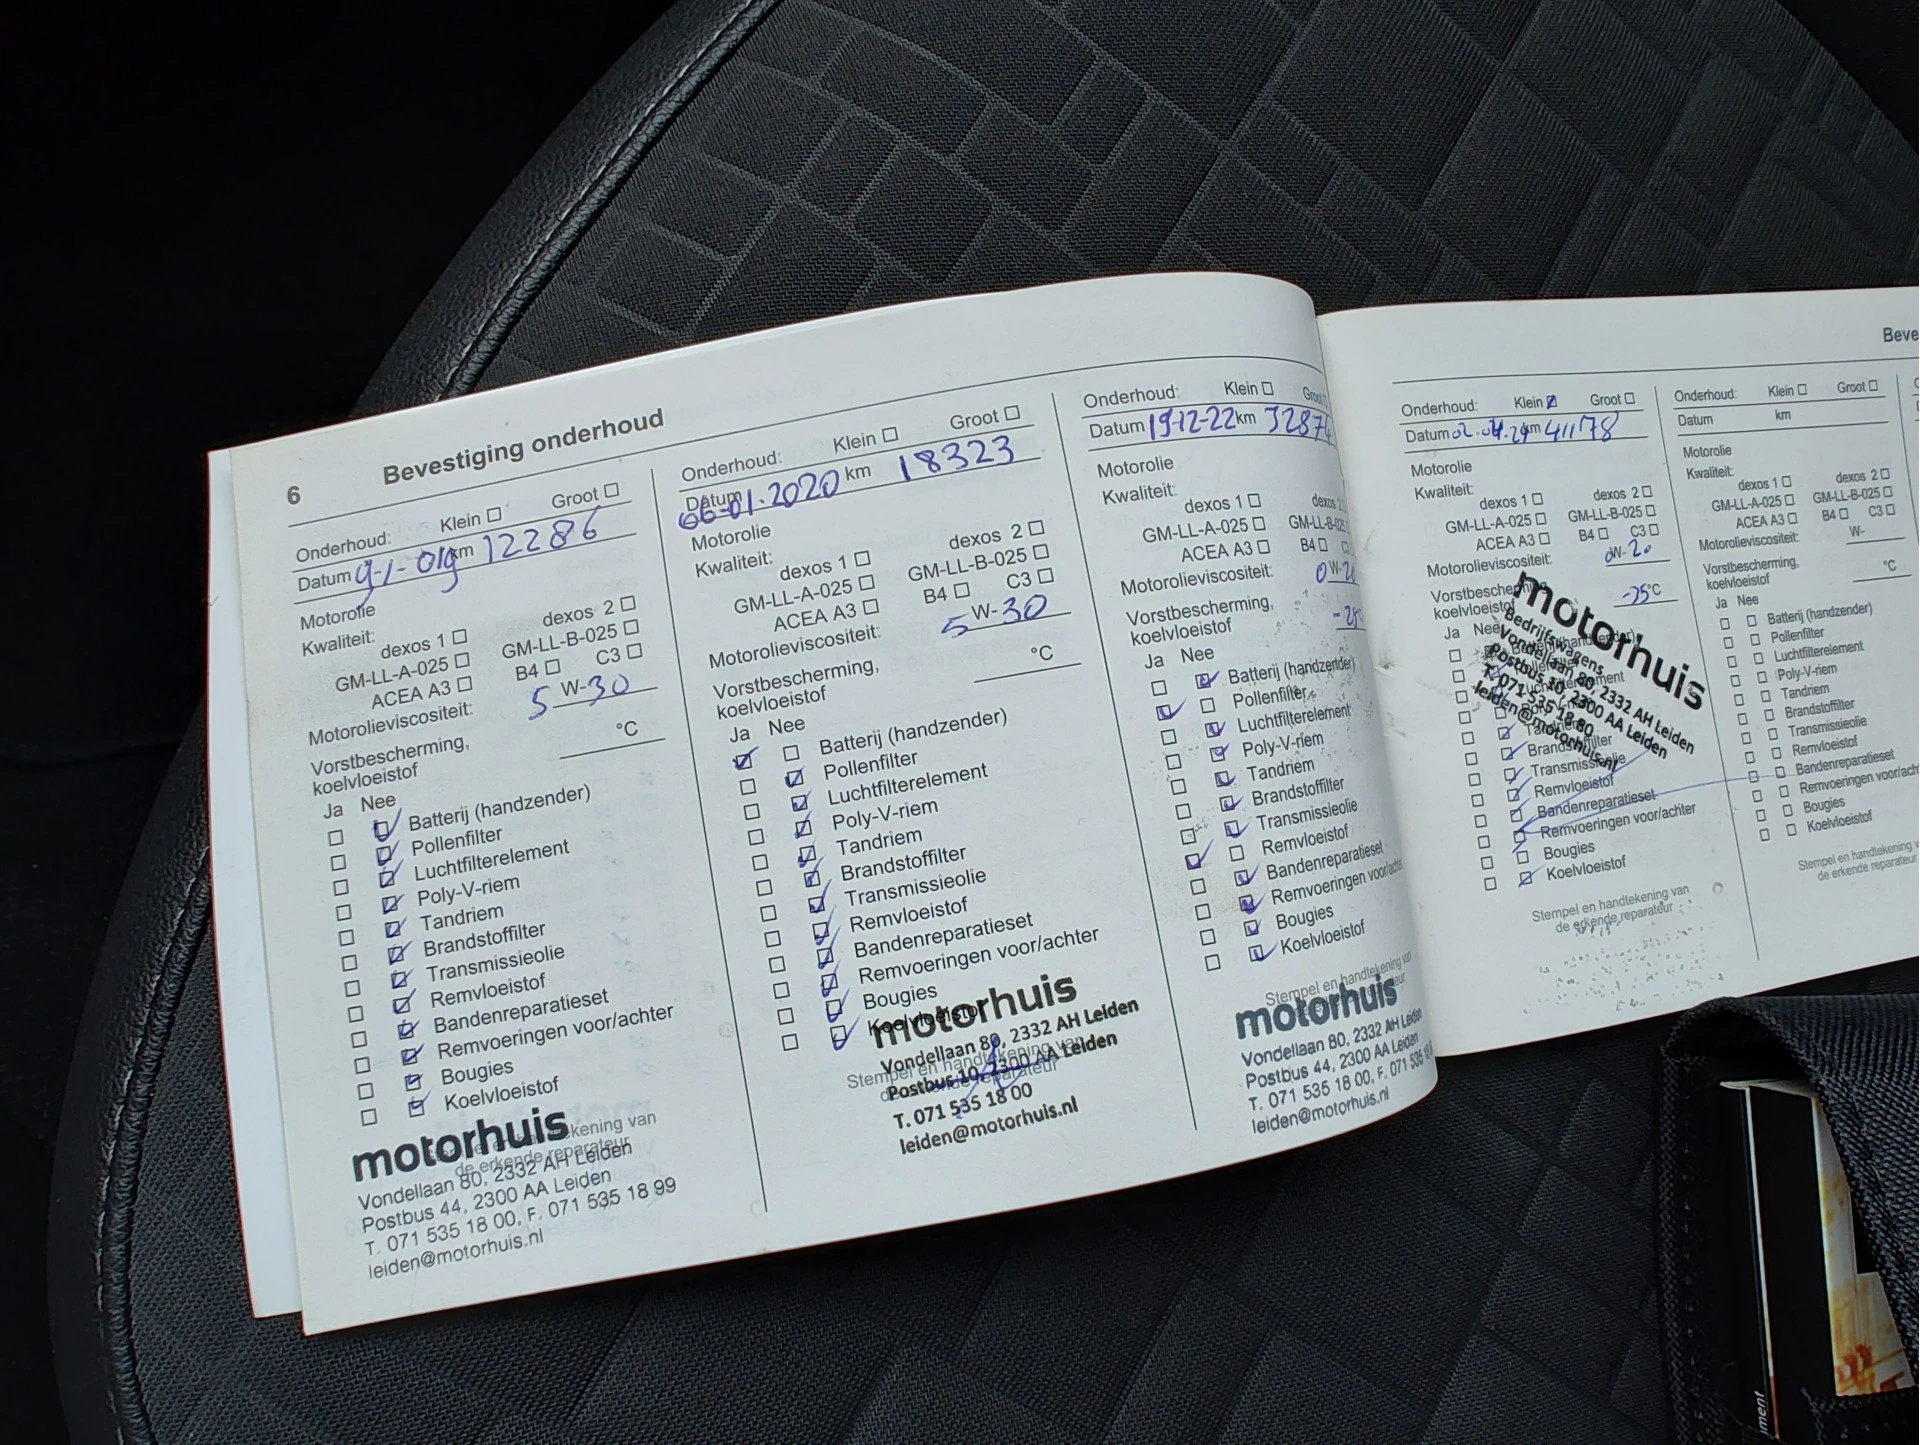 6
Bevestiging onderhoud
Onderhoud: Klein Groot
Datum 9-1-019 km 12286
Motorolie
Kwaliteit:
dexos 1 dexos 2
GM-LL-A-025 GM-LL-B-025
ACEA A3 B4 C3
Motorolieviscositeit: 5 W-30
Vorstbescherming,
koelvloeistof °C
Ja Nee
Batterij (handzender)
Pollenfilter
Luchtfilterelement
Poly-V-riem
Tandriem
Brandstoffilter
Transmissieolie
Remvloeistof
Bandenreparatieset
Remvoeringen voor/achter
Bougies
Koelvloeistof
Stempel en handtekening van
de erkende reparateur
motorhuis
Vondellaan 80, 2332 AH Leiden
Postbus 44, 2300 AA Leiden
T. 071 535 18 00, F. 071 535 18 99
leiden@motorhuis.nl
Onderhoud: Klein Groot
Datum 06-01-2020 km 18323
Motorolie
Kwaliteit:
dexos 1 dexos 2
GM-LL-A-025 GM-LL-B-025
ACEA A3 B4 C3
Motorolieviscositeit: 5 W-30
Vorstbescherming,
koelvloeistof °C
Ja Nee
Batterij (handzender)
Pollenfilter
Luchtfilterelement
Poly-V-riem
Tandriem
Brandstoffilter
Transmissieolie
Remvloeistof
Bandenreparatieset
Remvoeringen voor/achter
Bougies
Koelvloeistof
Stempel en handtekening van
de erkende reparateur
motorhuis
Vondellaan 80, 2332 AH Leiden
Postbus 10, 2300 AA Leiden
T. 071 535 18 00
leiden@motorhuis.nl
Onderhoud: Klein Groot
Datum 19-12-22 km 32874
Motorolie
Kwaliteit:
dexos 1 dexos 2
GM-LL-A-025 GM-LL-B-025
ACEA A3 B4
Motorolieviscositeit: 0 W-20
Vorstbescherming,
koelvloeistof
Ja Nee
Batterij (handzender)
Pollenfilter
Luchtfilterelement
Poly-V-riem
Tandriem
Brandstoffilter
Transmissieolie
Remvloeistof
Bandenreparatieset
Remvoeringen voor/achter
Bougies
Koelvloeistof
Stempel en handtekening van
motorhuis
Vondellaan 80, 2332 AH Leiden
Postbus 44, 2300 AA Leiden
T. 071 535 18 00, F. 071 535 18
leiden@motorhuis.nl
Beve
Onderhoud: Klein Groot
Datum 02.04.24 km 41178
Motorolie
Kwaliteit:
dexos 1 dexos 2
GM-LL-A-025 GM-LL-B-025
ACEA A3 B4 C3
Motorolieviscositeit: 0W-20
Vorstbescherming,
koelvloeistof -25°C
Ja Nee
motorhuis
Bedrijfswagens
Vondellaan 80, 2332 AH Leiden
Postbus 10, 2300 AA Leiden
T. 071 535 18 80
leiden@motorhuis.nl
Brandstoffilter
Transmissieolie
Remvloeistof
Bandenreparatieset
Remvoeringen voor/achter
Bougies
Koelvloeistof
Stempel en handtekening van
de erkende reparateur
Onderhoud: Klein Groot
Datum km
Motorolie
Kwaliteit:
dexos 1 dexos 2
GM-LL-A-025 GM-LL-B-025
ACEA A3 B4 C3
Motorolieviscositeit: W-
Vorstbescherming,
koelvloeistof °C
Ja Nee
Batterij (handzender)
Pollenfilter
Luchtfilterelement
Poly-V-riem
Tandriem
Brandstoffilter
Transmissieolie
Remvloeistof
Bandenreparatieset
Remvoeringen voor/ach
Bougies
Koelvloeistof
Stempel en handtekening v
de erkende reparateur
ment